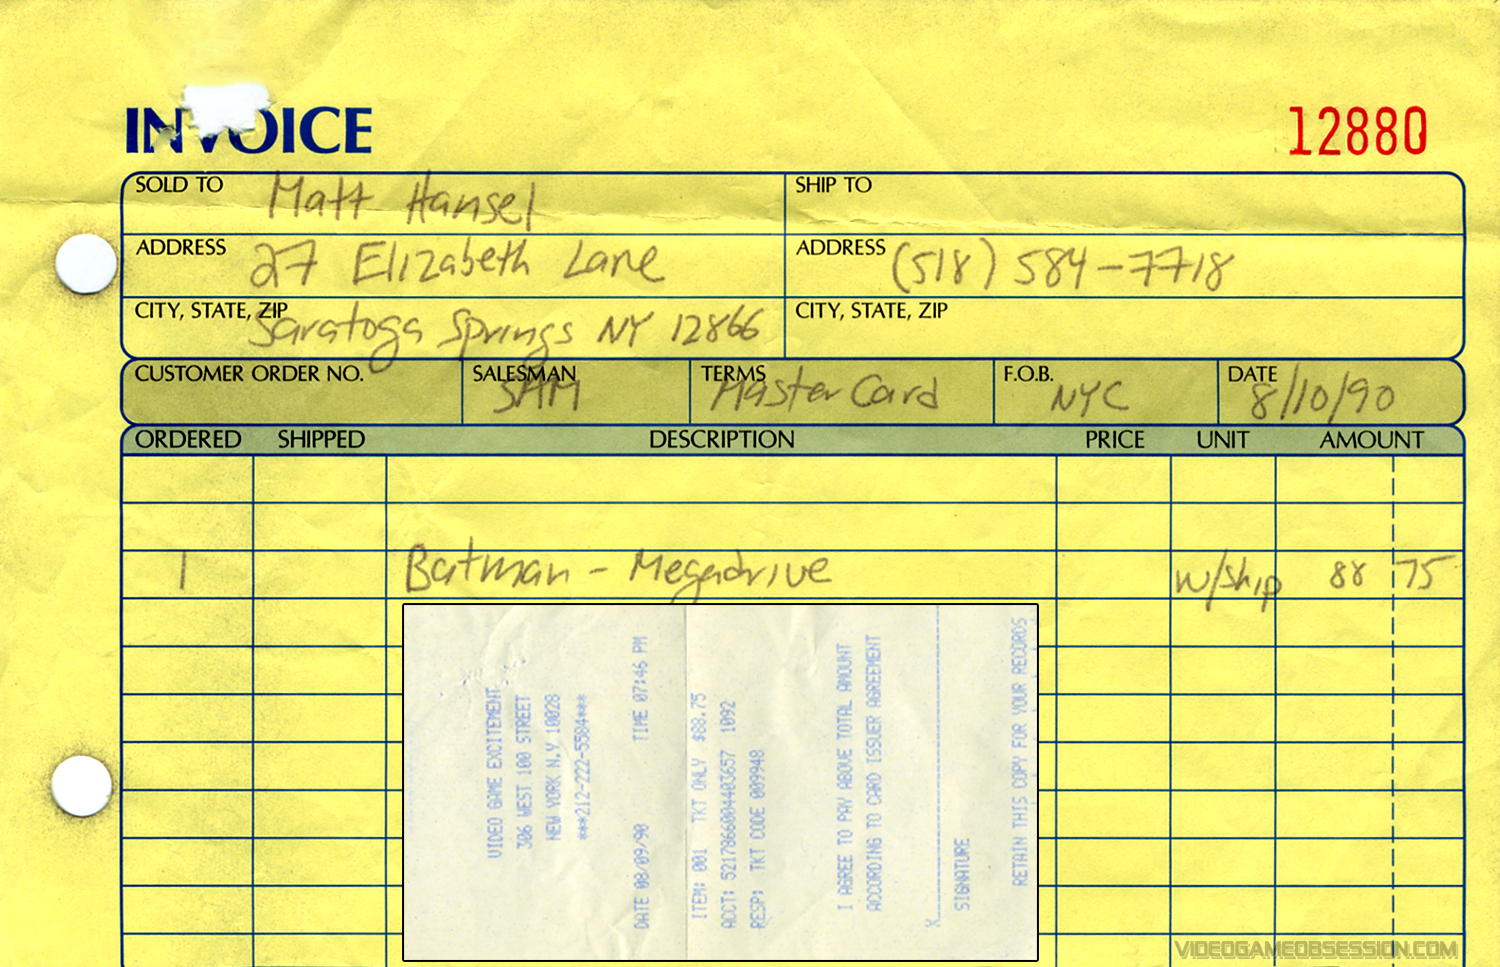 INVOICE
12880
SOLD TO Matt Hansel
SHIP TO
ADDRESS 27 Elizabeth Lane
ADDRESS (518) 584-7718
CITY, STATE, ZIP Saratoga Springs NY 12866
CITY, STATE, ZIP
CUSTOMER ORDER NO.
SALESMAN SAM
TERMS MasterCard
F.O.B. NYC
DATE 8/10/90
ORDERED SHIPPED DESCRIPTION PRICE UNIT AMOUNT
1 Batman - Megadrive w/ship 88 75
VIDEO GAME EXCITEMENT
306 WEST 100 STREET
NEW YORK N.Y 10028
***212-222-5584***
DATE 08/09/90 TIME 07:46 PM
ITEM: 001 TKT ONLY $88.75
ACCT: 5217866004403657 1092
RESP: TKT CODE 009948
I AGREE TO PAY ABOVE TOTAL AMOUNT
ACCORDING TO CARD ISSUER AGREEMENT
X
SIGNATURE
RETAIN THIS COPY FOR YOUR RECORDS
VIDEOGAMEOBSESSION.COM